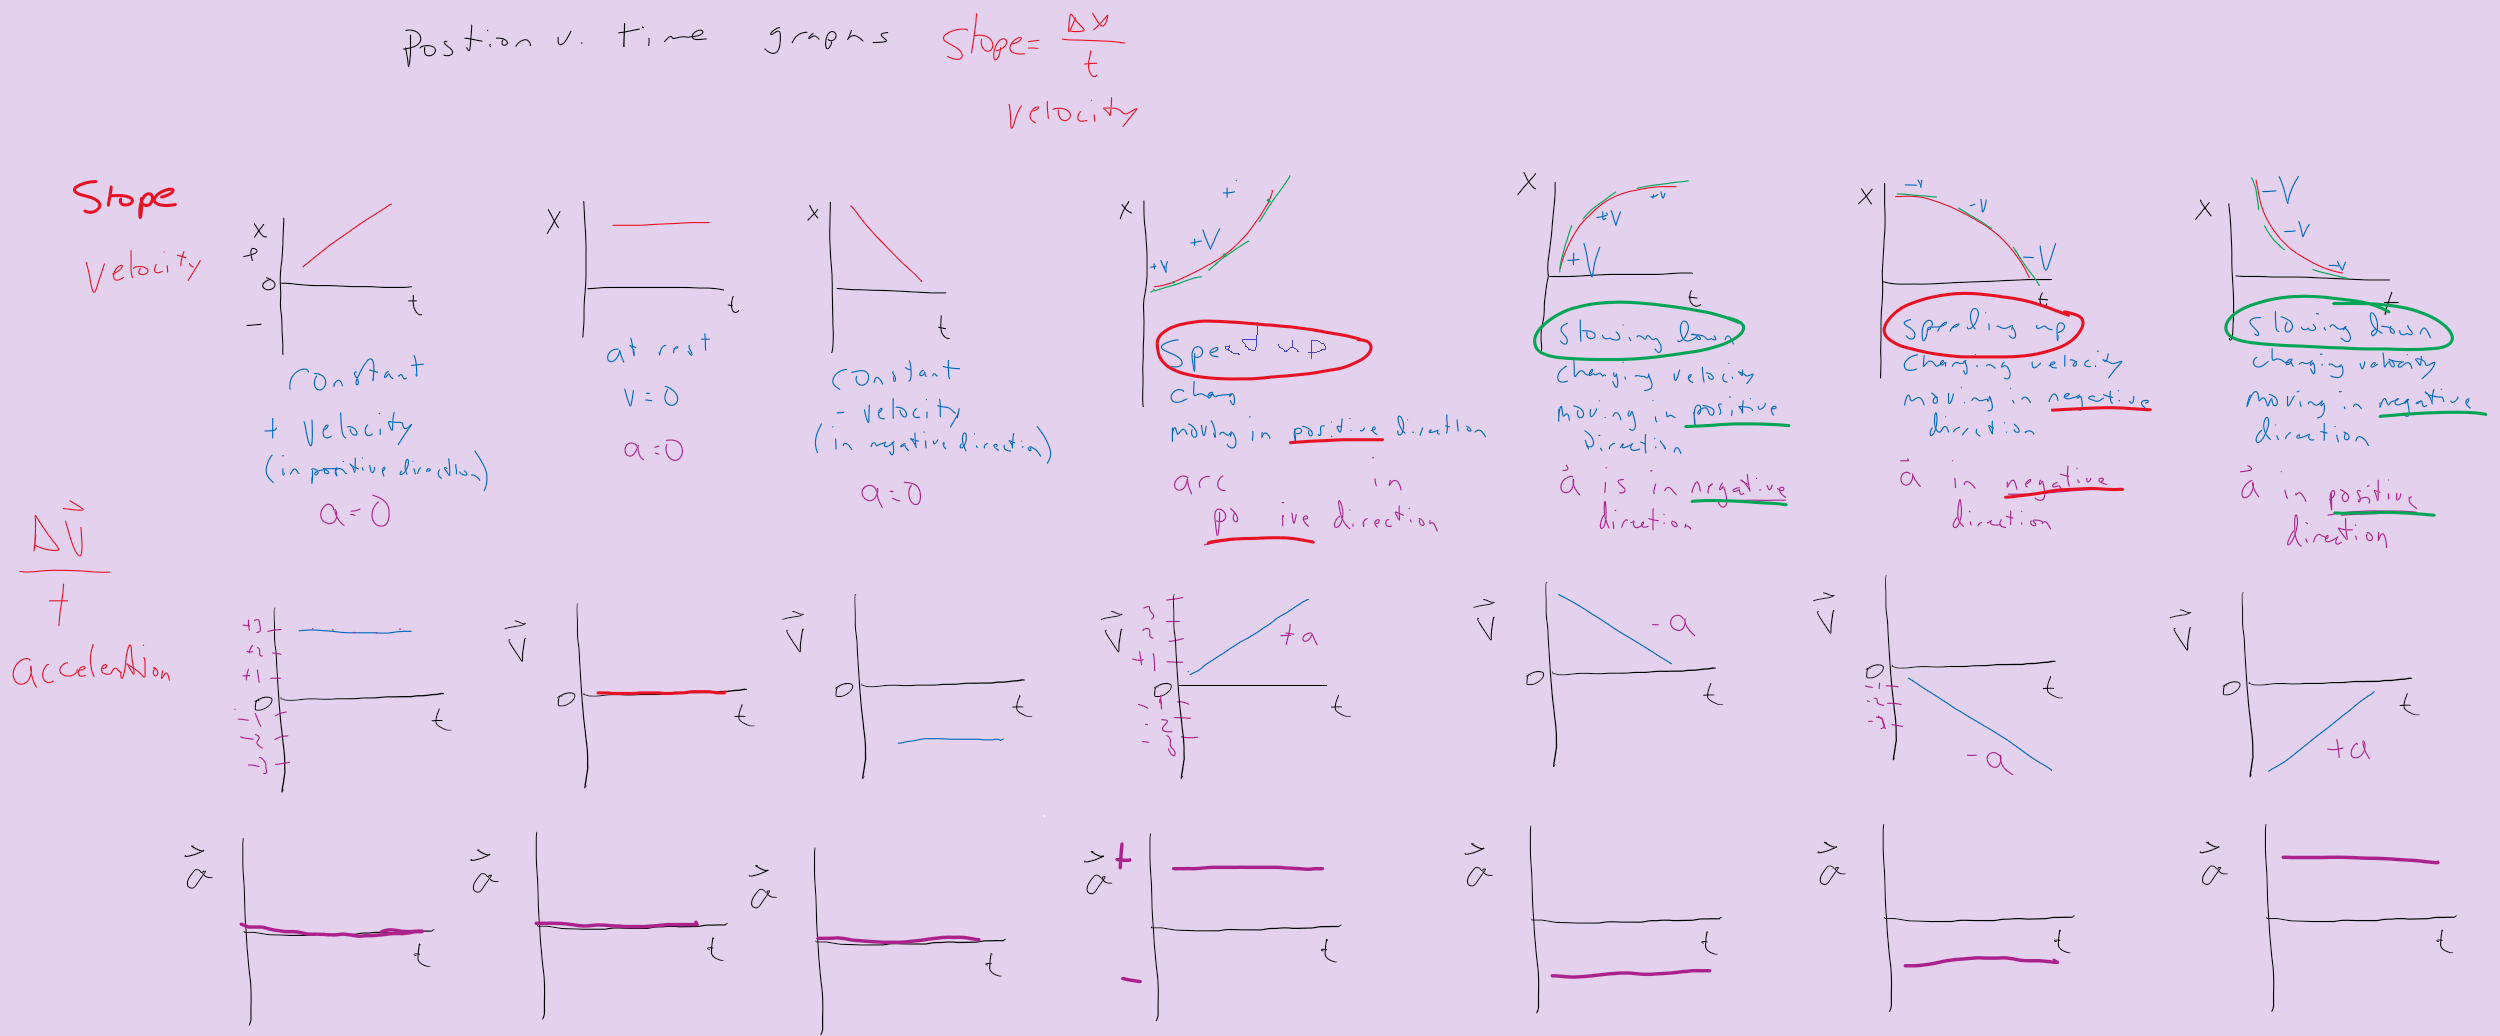 position v. time graphs
Slope = Δx
t
velocity
Slope
velocity
x
+
0
-
t
constant
+ velocity
(in positive direction)
a = 0
x
t
at rest
v = 0
a = 0
x
t
constant
- velocity
(in negative direction)
a = 0
x
+v
+V
+
Speed up
chang
moving in positive direction
acc in
po ive direction
x
+V
+V
+v
t
slowing down
changing velocity
moving in positive
direction
a is in negative
direction
x
-v
-V
-V
t
speeding up
changing velocity
moving in negative
direction
a in negative
direction
x
-V
-V
-v
t
slowing down
changing velocity
moving in negative
direction
a in positive
direction
ΔV
t
acceleration
+3
+2
+1
0
-1
-2
-3
t
V
0
t
V
0
t
V
3
2
+1
0
-1
-2
-3
+a
t
V
0
-a
t
V
0
-1
-2
-3
-a
t
V
0
+a
t
a
t
a
t
a
t
a
+
-
t
a
t
a
t
a
t